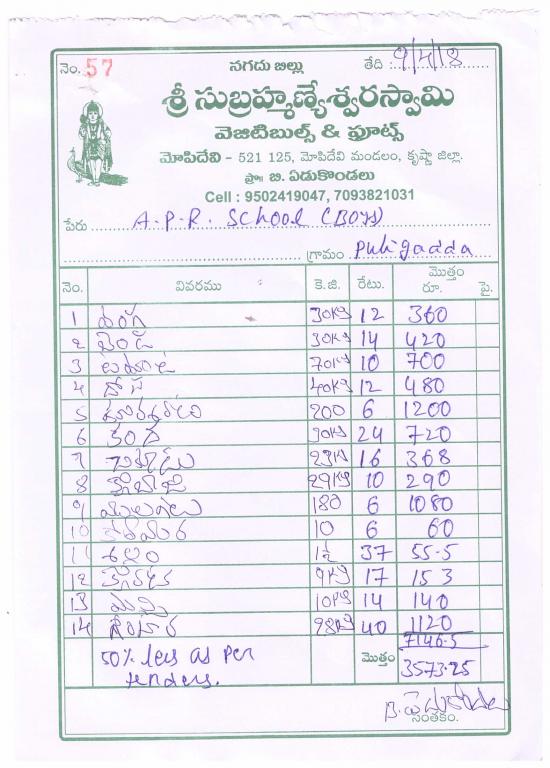 నెం. 57 నగదు బిల్లు తేది : 9/4/18
శ్రీ సుబ్రహ్మణ్యేశ్వరస్వామి
వెజిటిబుల్స్ & ఫ్రూట్స్
మోపిదేవి - 521 125, మోపిదేవి మండలం, కృష్ణా జిల్లా.
ప్రొ॥ బి. ఏడుకొండలు
Cell : 9502419047, 7093821031
పేరు A.P.R. School (BOYS)
గ్రామం Puligadda
నెం. వివరము కె.జి. రేటు. మొత్తం రూ. పై.
1 వంగ 30Kg 12 360
2 బెండ 30Kg 14 420
3 టమాట 70Kg 10 700
4 దోస 40Kg 12 480
5 200 6 1200
6 30Kg 24 720
7 23Kg 16 368
8 కాబేజి 29Kg 10 290
9 ములగకాడలు 180 6 1080
10 10 6 60
11 అల్లం 1½ 37 55.5
12 9Kg 17 153
13 10Kg 14 140
14 28Kg 40 1120
7146.5
50% less as per మొత్తం 3573.25
tenders.
సంతకం.